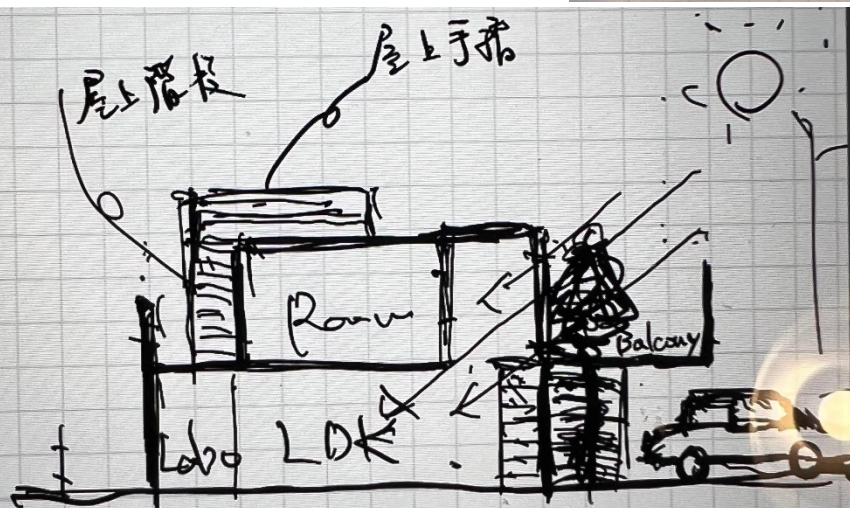 屋上階段
屋上手摺
Room
Balcony
Labo
LDK